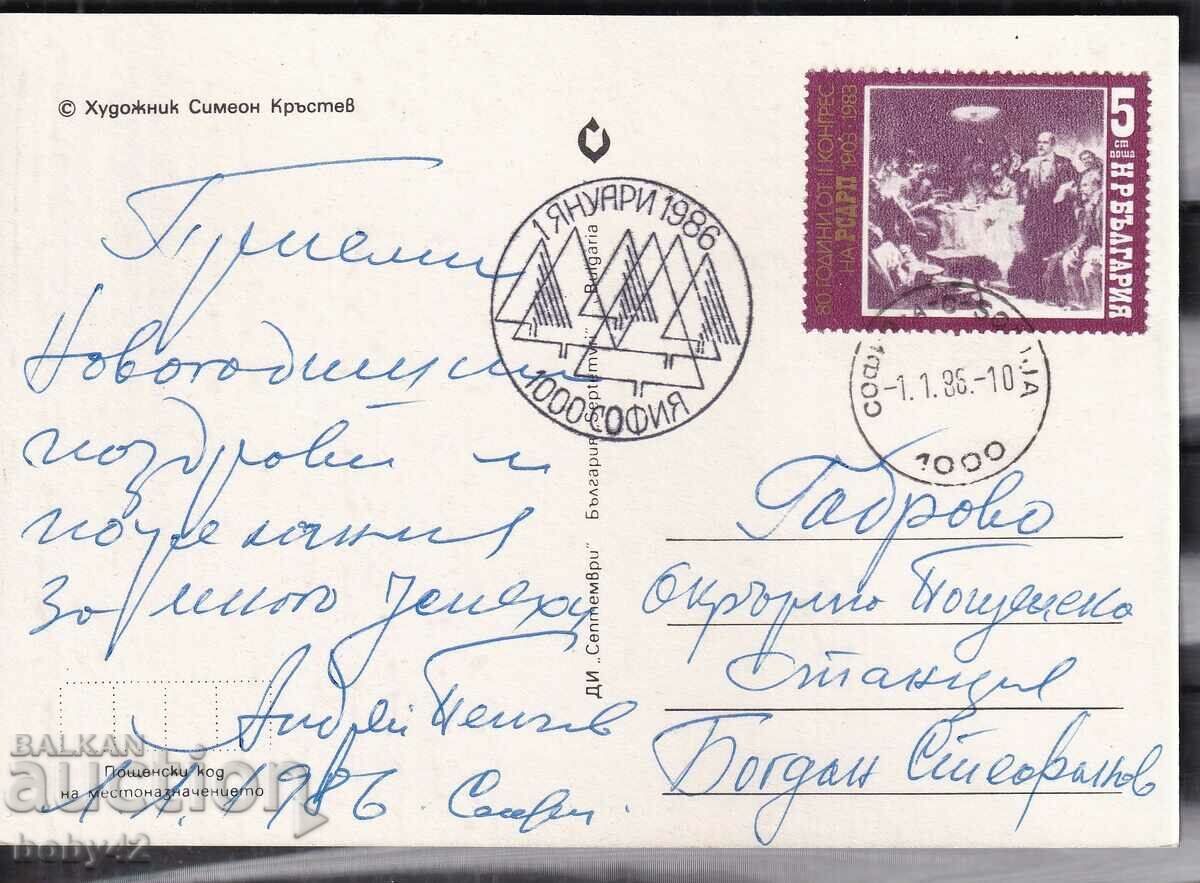 © Художник Симеон Кръстев
Приеми
Новогодишни
поздрави и
пожелания
за много успехи
Андрей Пенчев
1.1.1986 София
Пощенски код
на местоназначението
ДИ „Септември" България „Septemvri" Bulgaria
1 ЯНУАРИ 1986
1000 СОФИЯ
80 ГОДИНИ ОТ II КОНГРЕС
НА РСДРП 1903-1983
5 СТ
ПОЩА
Н Р БЪЛГАРИЯ
-1.1.86.-10
1000
Габрово
Окръжна Пощенска
Станция
Богдан Стефанов
BALKAN
auction
boby42